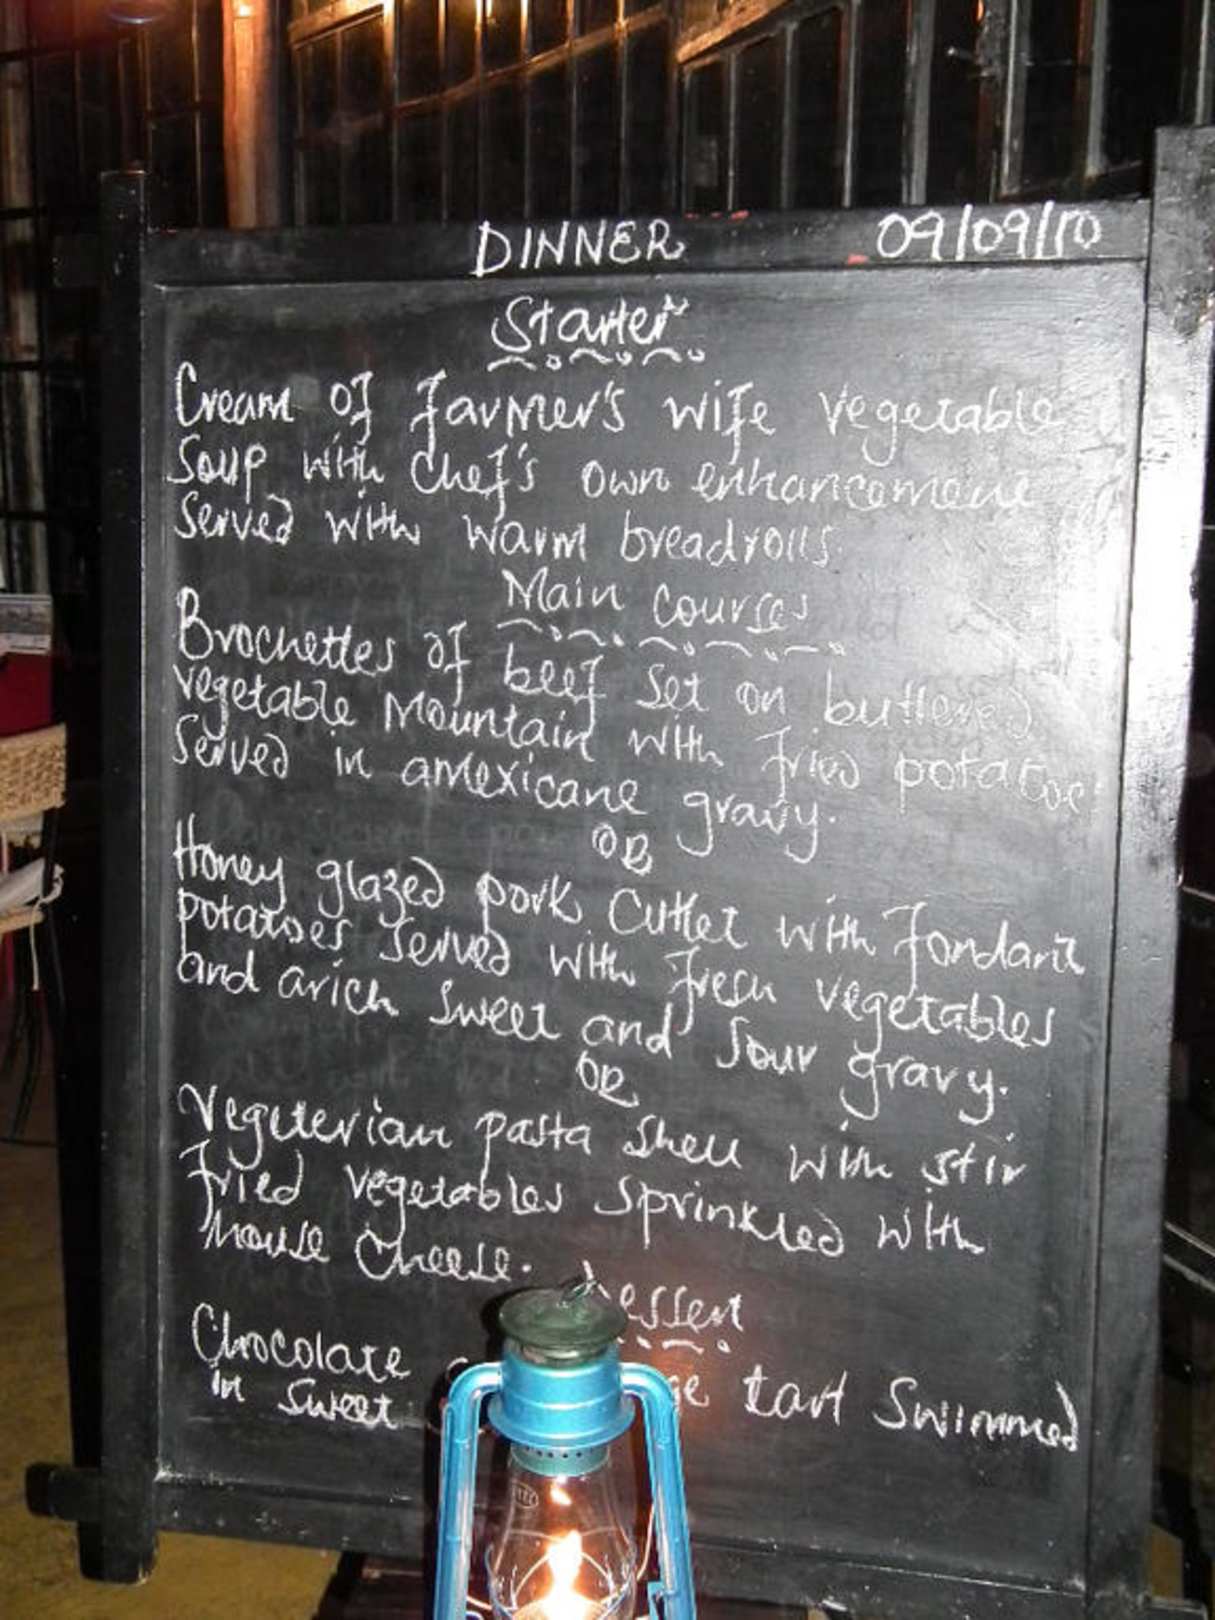 DINNER 09/09/10
Starter
Cream of Farmer's wife vegetable
Soup with Chef's own enhancement
Served with warm breadrolls.
Main Courses
Brochettes of beef set on buttered
vegetable Mountain with fried potatoe
Served in amexicane gravy.
OR
Honey glazed pork Cutlet with Fondant
potatoes served with fresh vegetables
and arich sweet and sour gravy.
OR
Vegeterian pasta shell with stir
Fried vegetables Sprinkled with
house cheese.
Dessert
Chocolate tart Swimmed
in Sweet